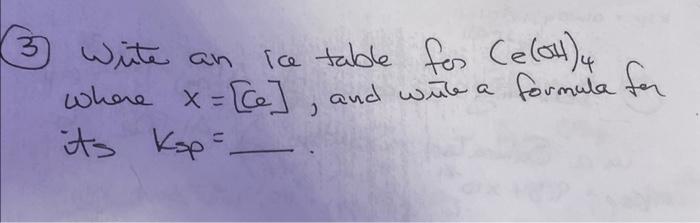 3 Write an ice table for Ce(OH)4
where x = [Ce], and write a formula for
its Ksp = ___.